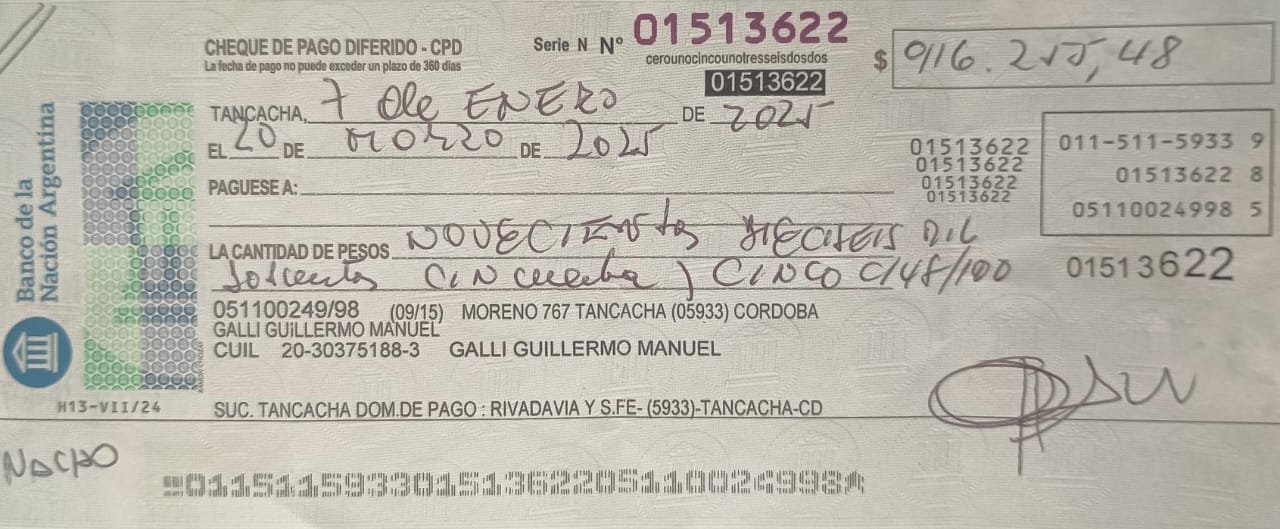 CHEQUE DE PAGO DIFERIDO - CPD
La fecha de pago no puede exceder un plazo de 360 días
Serie N Nº 01513622
cerounocincounotresseisdosdos
01513622
$ 916.255,48
TANCACHA, 7 de ENERO DE 2025
EL 20 DE Marzo DE 2025
PAGUESE A:
LA CANTIDAD DE PESOS NOVECIENtos DIECISEIS MIL
doscientos CINCuenta y CINCO c/48/100
01513622
01513622
01513622
01513622
011-511-5933 9
01513622 8
05110024998 5
01513622
051100249/98 (09/15) MORENO 767 TANCACHA (05933) CORDOBA
GALLI GUILLERMO MANUEL
CUIL 20-30375188-3 GALLI GUILLERMO MANUEL
SUC. TANCACHA DOM.DE PAGO : RIVADAVIA Y S.FE- (5933)-TANCACHA-CD
Banco de la
Nación Argentina
H13-VII/24
NACHO
01151159330151362205110024998